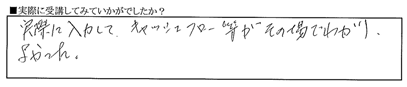 ■実際に受講してみていかがでしたか？
実際に入力して、キャッシュフロー等がその場でわかり、
よかった。